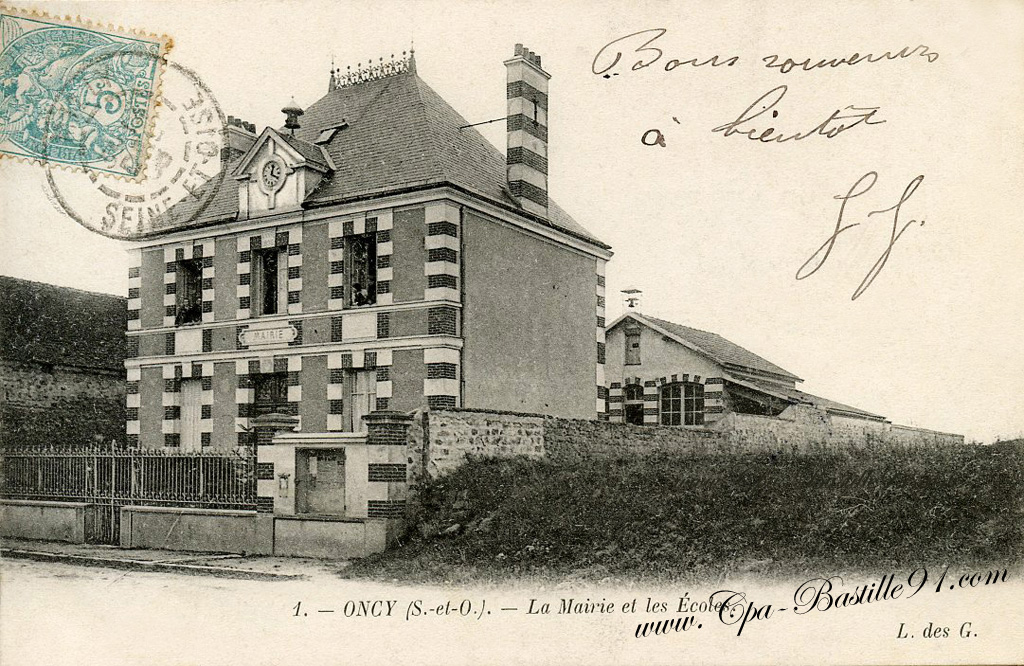 5c
POSTES
SEINE-ET-OISE
Bons souvenirs
à bientôt
MAIRIE
1. — ONCY (S.-et-O.). — La Mairie et les Écoles.
www.Cpa-Bastille91.com
L. des G.